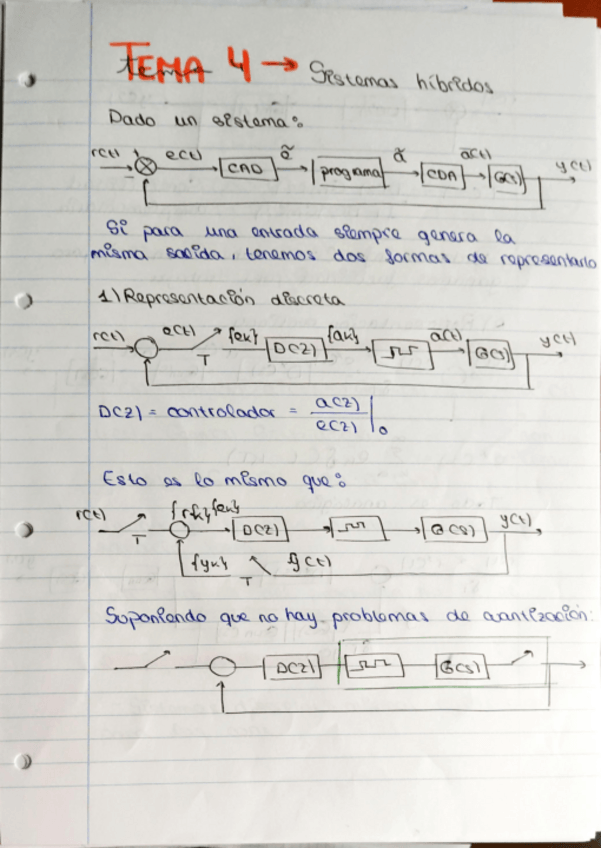 TEMA 4 → Sistemas híbridos
Dado un sistema:
r(t) e(t) CAD ẽ programa ã CDA a(t) G(s) y(t)
Si para una entrada siempre genera la
misma salida, tenemos dos formas de representarlo
1) Representación discreta
r(t) e(t) T {ek} D(z) {ak} a(t) G(s) y(t)
D(z) = controlador = a(z)/e(z) |₀
Esto es lo mismo que:
r(t) T {rk} {ek} D(z) G(s) y(t)
{yk} T y(t)
Suponiendo que no hay problemas de cuantización:
D(z) G(s)